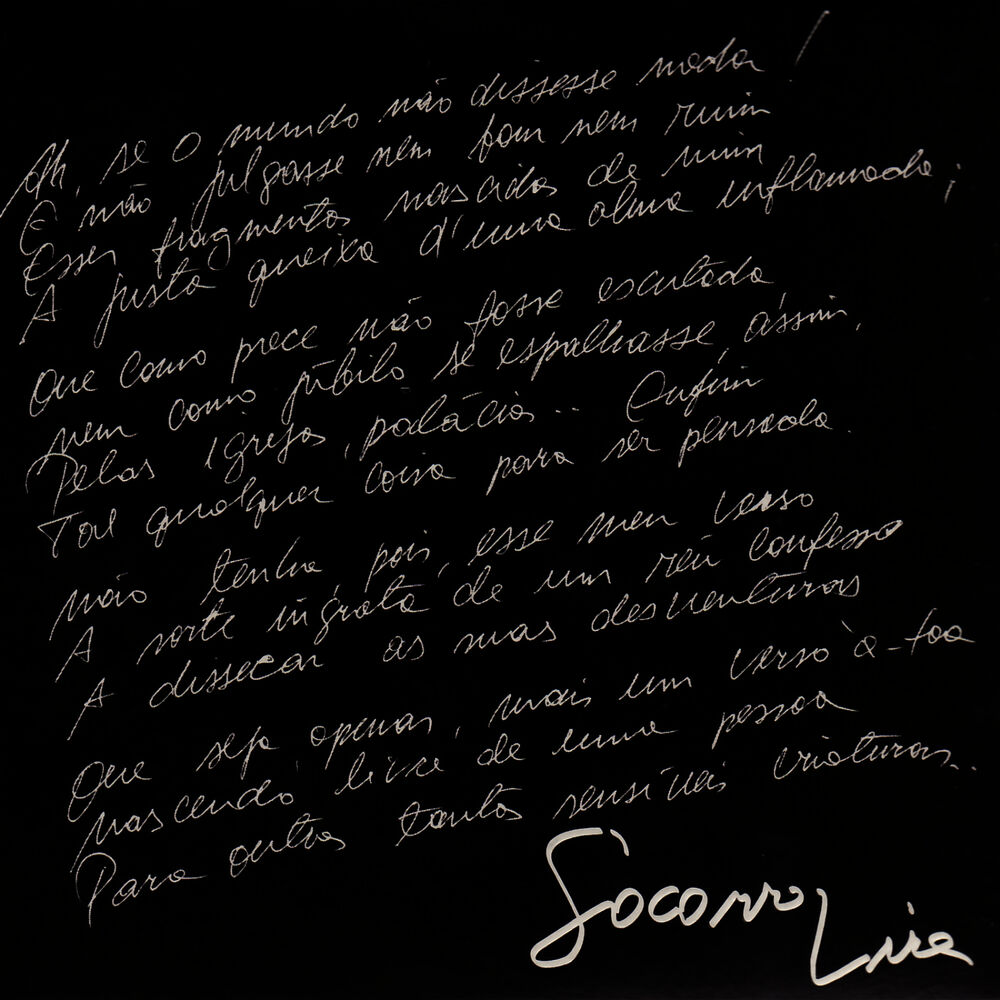 Ah, se o mundo não dissesse nada!
E não julgasse nem bom nem ruim
Esses fragmentos nascidos de mim
A justa queixa d'uma alma inflamada;
Que como prece não fosse escutada
nem como júbilo se espalhasse, assim,
Pelas igrejas, palácios... Enfim
Tal qualquer coisa para ser pensada.
não tenha, pois, esse meu verso
A sorte ingrata de um réu confesso
A dissecar as suas desventuras
Que seja, apenas, mais um verso à-toa
nascendo livre de uma pessoa
Para outras tantas sensíveis criaturas...
Socorro Lira